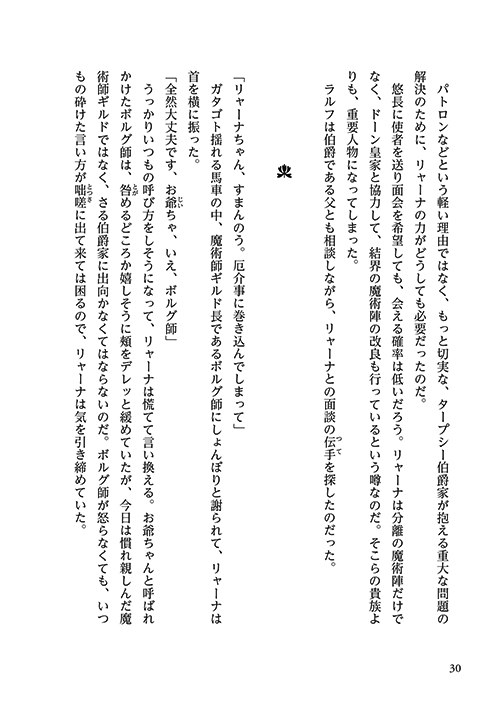 パトロンなどという軽い理由ではなく、もっと切実な、タープシー伯爵家が抱える重大な問題の
解決のために、リャーナの力がどうしても必要だったのだ。
　悠長に使者を送り面会を希望しても、会える確率は低いだろう。リャーナは分離の魔術陣だけで
なく、ドーン皇家と協力して、結界の魔術陣の改良も行っているという噂なのだ。そこらの貴族よ
りも、重要人物になってしまった。
　ラルフは伯爵である父とも相談しながら、リャーナとの面談の伝手を探したのだった。
「リャーナちゃん、すまんのう。厄介事に巻き込んでしまって」
　ガタゴト揺れる馬車の中、魔術師ギルド長であるボルグ師にしょんぼりと謝られて、リャーナは
首を横に振った。
「全然大丈夫です、お爺ちゃ、いえ、ボルグ師」
　うっかりいつもの呼び方をしそうになって、リャーナは慌てて言い換える。お爺ちゃんと呼ばれ
かけたボルグ師は、咎めるどころか嬉しそうに頬をデレッと緩めていたが、今日は慣れ親しんだ魔
術師ギルドではなく、さる伯爵家に出向かなくてはならないのだ。ボルグ師が怒らなくても、いつ
もの砕けた言い方が咄嗟に出て来ては困るので、リャーナは気を引き締めていた。
30